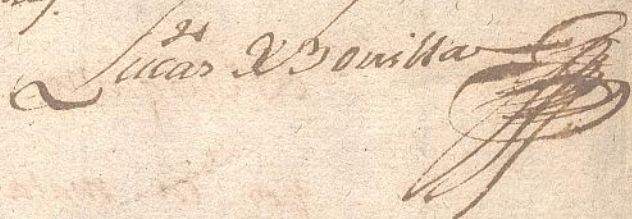 Lucas X Bonilla